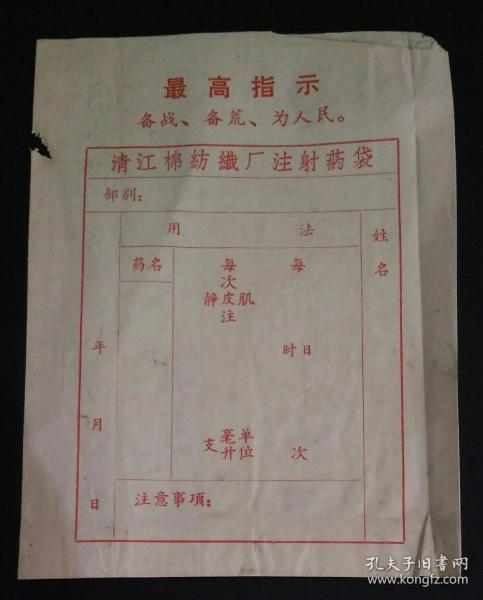 最高指示
备战、备荒、为人民。
清江棉紡織厂注射葯袋
部别：
用法
姓名
葯名
每次
靜皮肌
注
每
时日
支毫升单位
次
年月日
注意事項：
孔夫子旧书网
www.kongfz.com